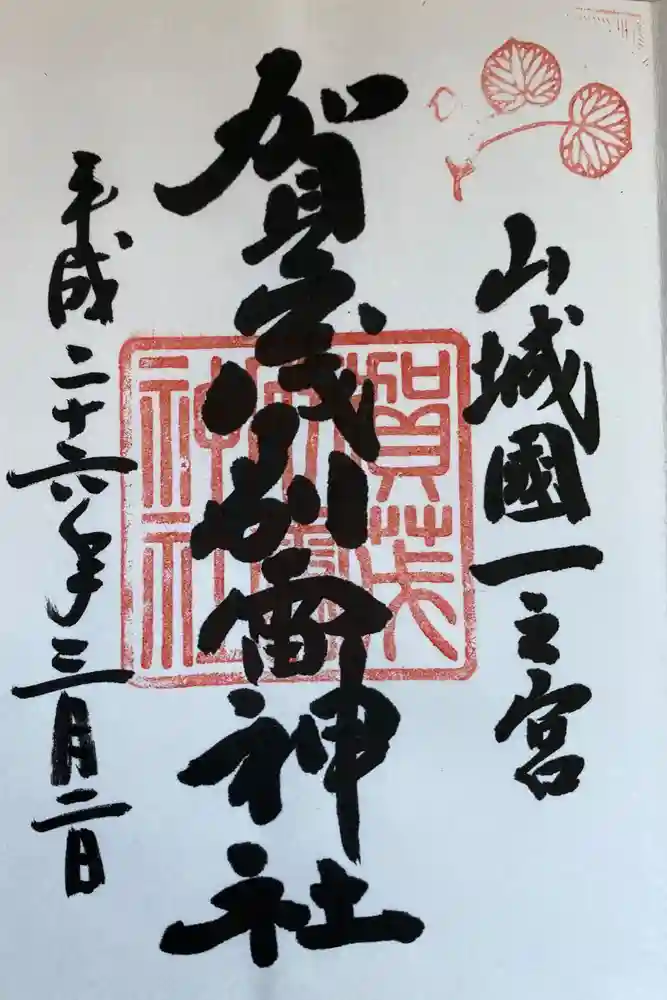 山城國一之宮
賀茂別雷神社
賀茂別雷神社
平成二十六年三月二日